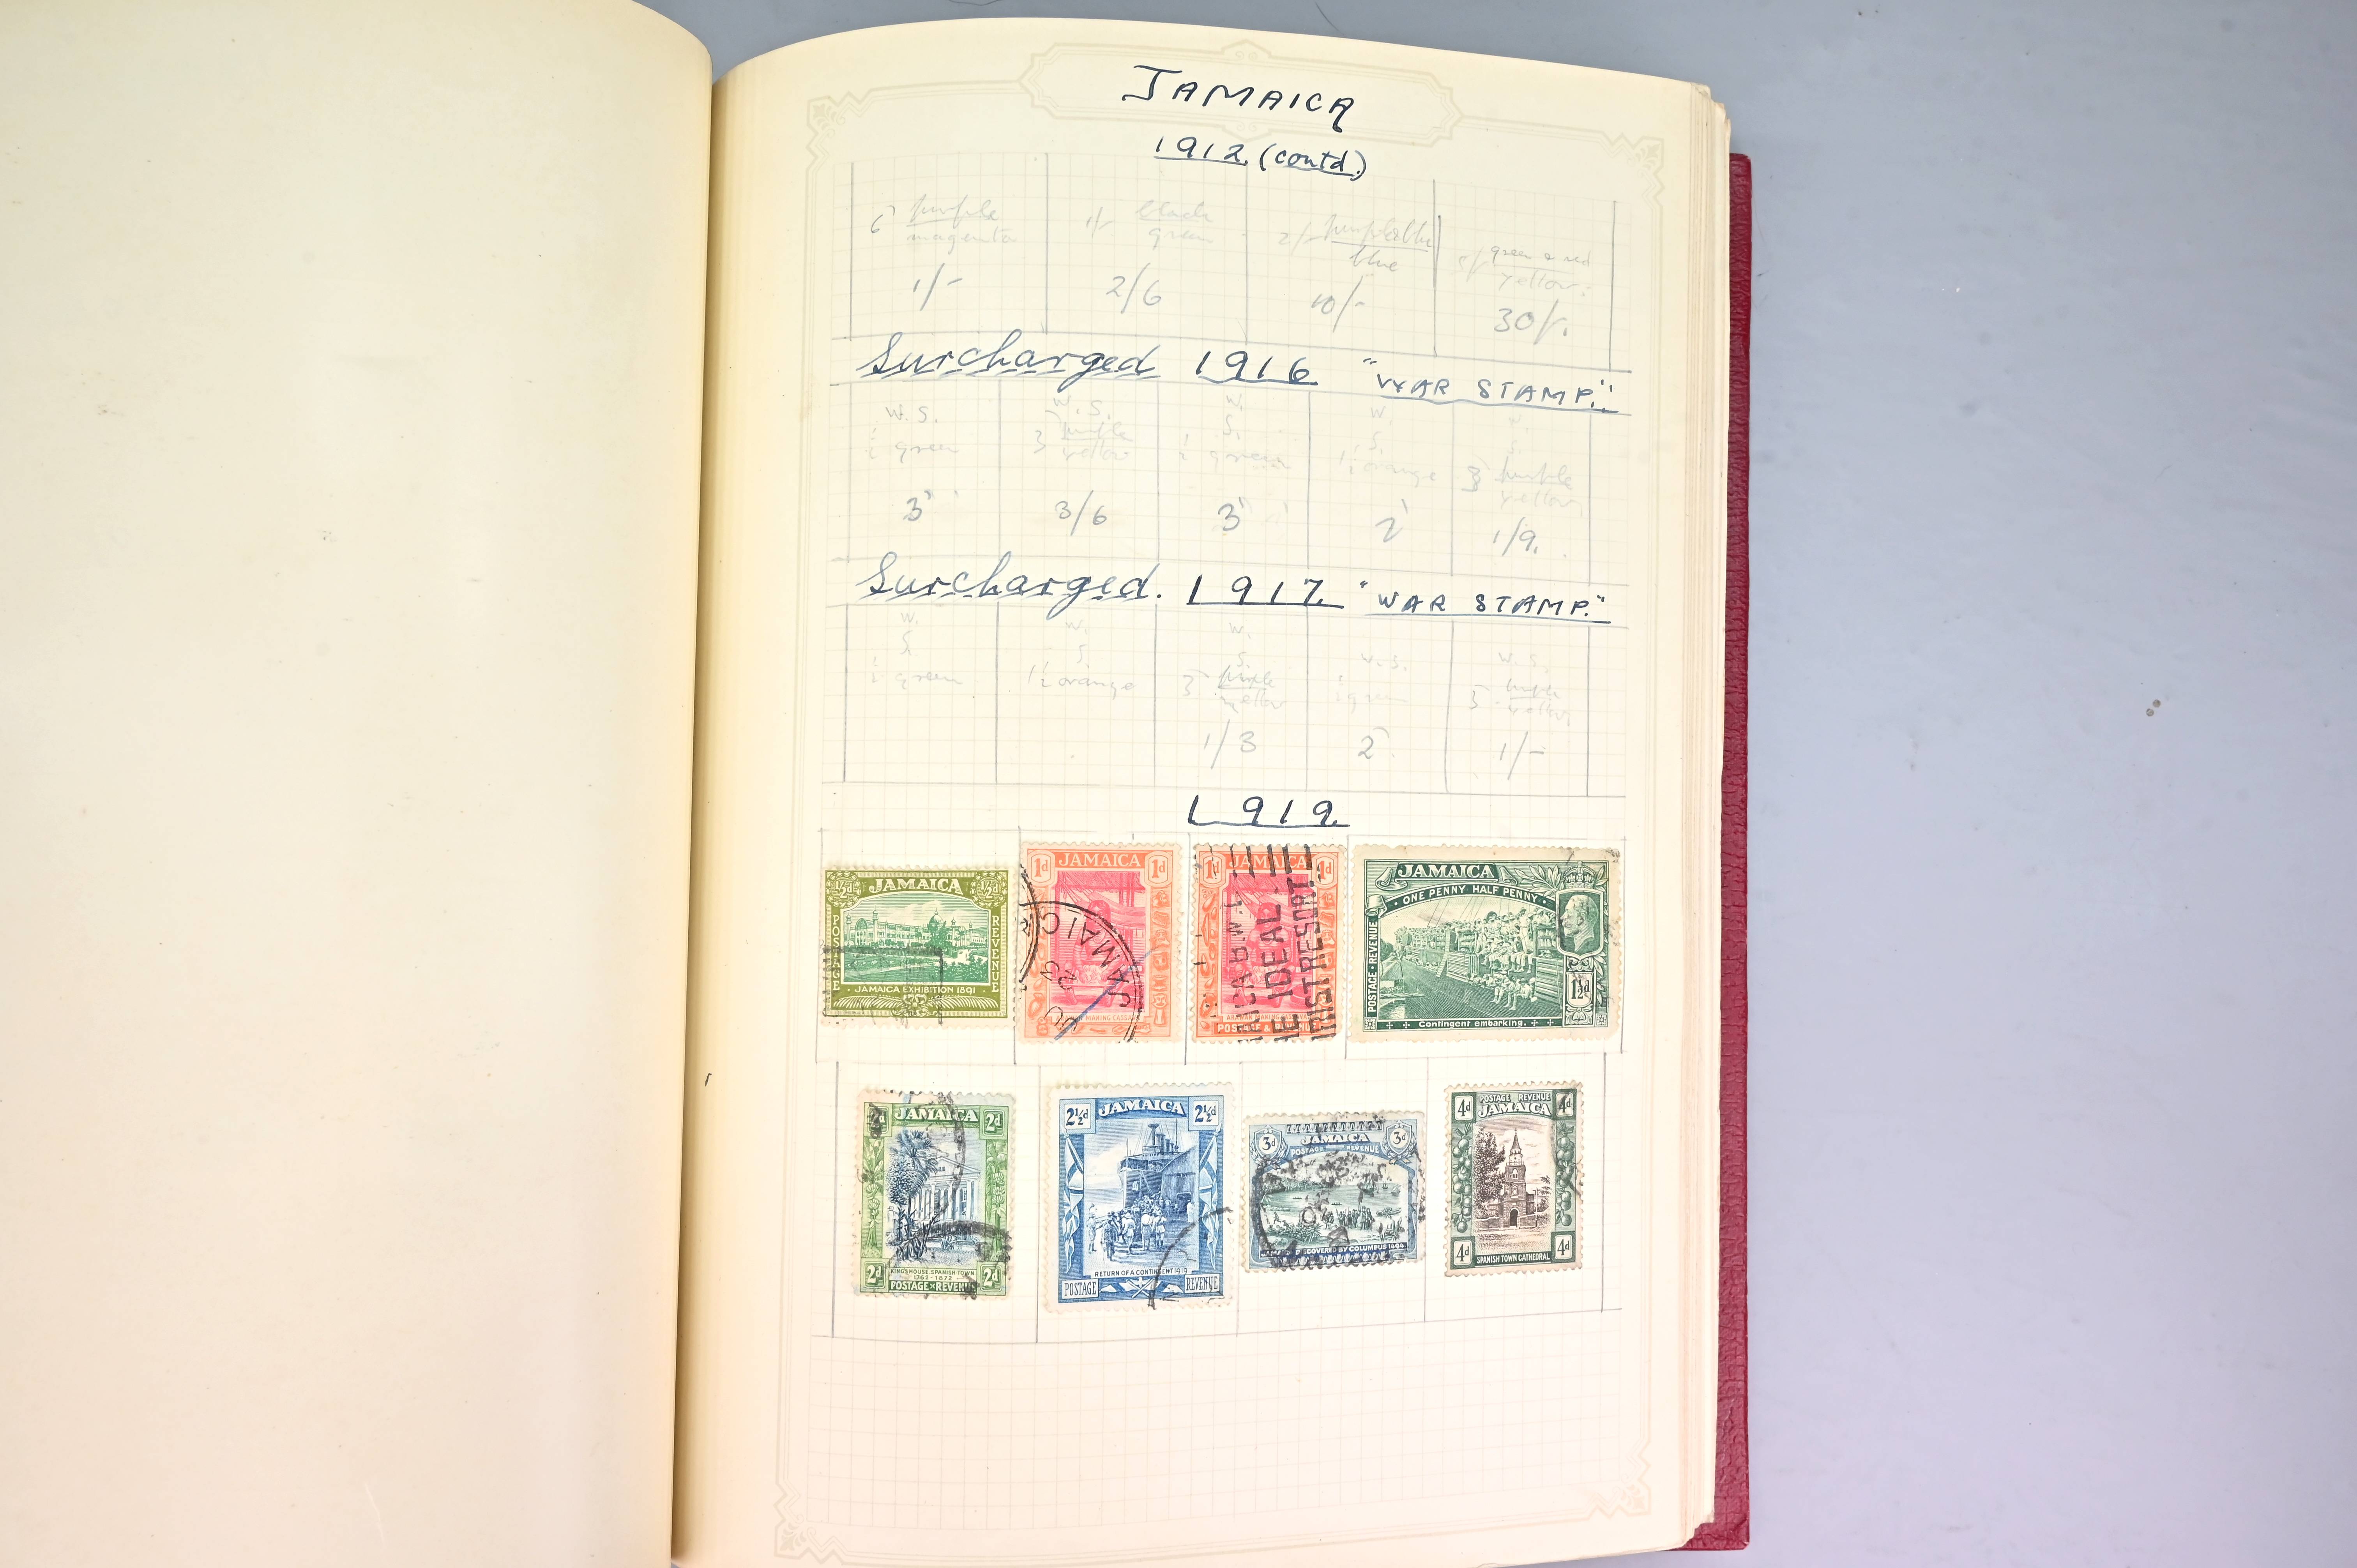 JAMAICA
1912 (contd.)
6 purple magenta
1/- black green
2/- blue
5/ green & red yellow.
1/-
2/6
10/-
30/.
Surcharged 1916 "WAR STAMP."
W. S.
½ green
W. S.
3 purple yellow
W. S.
½ green
W. S.
1½ orange
S.
3 purple yellow
3
3/6
3
2
1/9.
Surcharged. 1917. "WAR STAMP."
W. S.
½ green
W. S.
1½ orange
W. S.
3 purple yellow
W. S.
½ green
W. S.
3 purple yellow
1/3
2
1/-
1919.
½d JAMAICA ½d
POSTAGE REVENUE
JAMAICA EXHIBITION 1891
1d JAMAICA 1d
MAKING CASSAVA
JAMAICA
JU 23
JAMAICA 1d
POSTAGE & REVENUE
JAMAICA B.W.I.
THE IDEAL
TOURIST RESORT
JAMAICA
ONE PENNY HALF PENNY
POSTAGE · REVENUE
1½d
Contingent embarking.
JAMAICA 2d
KING'S HOUSE, SPANISH TOWN
1762-1872
2d 2d
POSTAGE REVENUE
2½d JAMAICA 2½d
RETURN OF A CONTINGENT 1919
POSTAGE REVENUE
3d JAMAICA 3d
POSTAGE REVENUE
COVERED BY COLUMBUS 1494
POSTAGE REVENUE
4d JAMAICA 4d
4d 4d
SPANISH TOWN CATHEDRAL